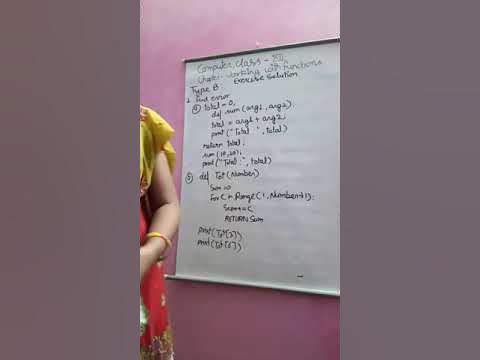 Computer class - XII
Chapter- Working with functions
Exercise Solution
Type B:
2. Find error
(a) total = 0;
def sum (arg1, arg2)
total = arg1 + arg2
print ("Total :", total)
return total;
sum (10,20);
print ("Total:", total)
(b) def Tot (Number)
Sum = 0
For C in Range (1, Number+1):
Sum += C
RETURN Sum
Print (Tot[3])
Print (Tot[6])